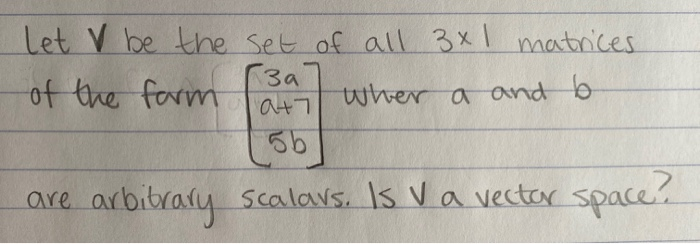 Let V be the set of all 3×1 matrices
of the form [3a a+7 5b] wher a and b
are arbitrary scalars. Is V a vector space?